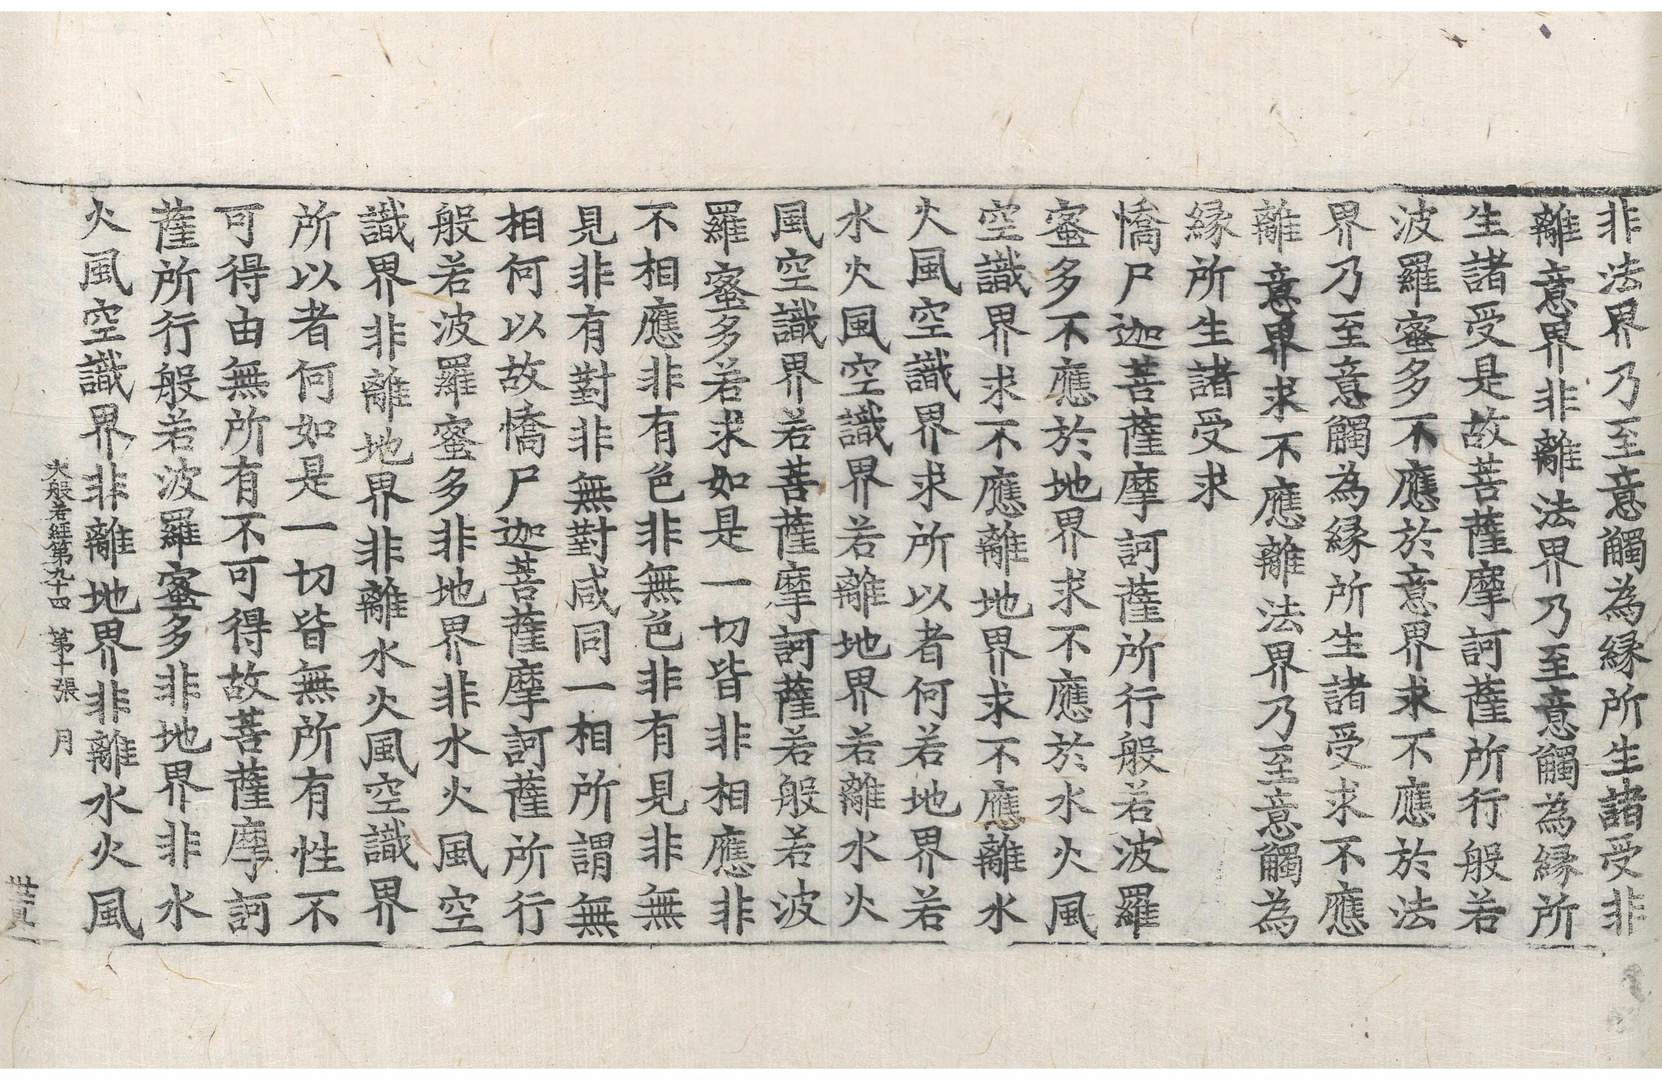 非法界乃至意觸為緣所生諸受非
離意界非離法界乃至意觸為緣所
生諸受是故菩薩摩訶薩所行般若
波羅蜜多不應於意界求不應於法
界乃至意觸為緣所生諸受求不應
離意界求不應離法界乃至意觸為
緣所生諸受求
憍尸迦菩薩摩訶薩所行般若波羅
蜜多不應於地界求不應於水火風
空識界求不應離地界求不應離水
火風空識界求所以者何若地界若
水火風空識界若離地界若離水火
風空識界若菩薩摩訶薩若般若波
羅蜜多若求如是一切皆非相應非
不相應非有色非無色非有見非無
見非有對非無對咸同一相所謂無
相何以故憍尸迦菩薩摩訶薩所行
般若波羅蜜多非地界非水火風空
識界非離地界非離水火風空識界
所以者何如是一切皆無所有性不
可得由無所有不可得故菩薩摩訶
薩所行般若波羅蜜多非地界非水
火風空識界非離地界非離水火風
大般若經第九十四 第十張 月